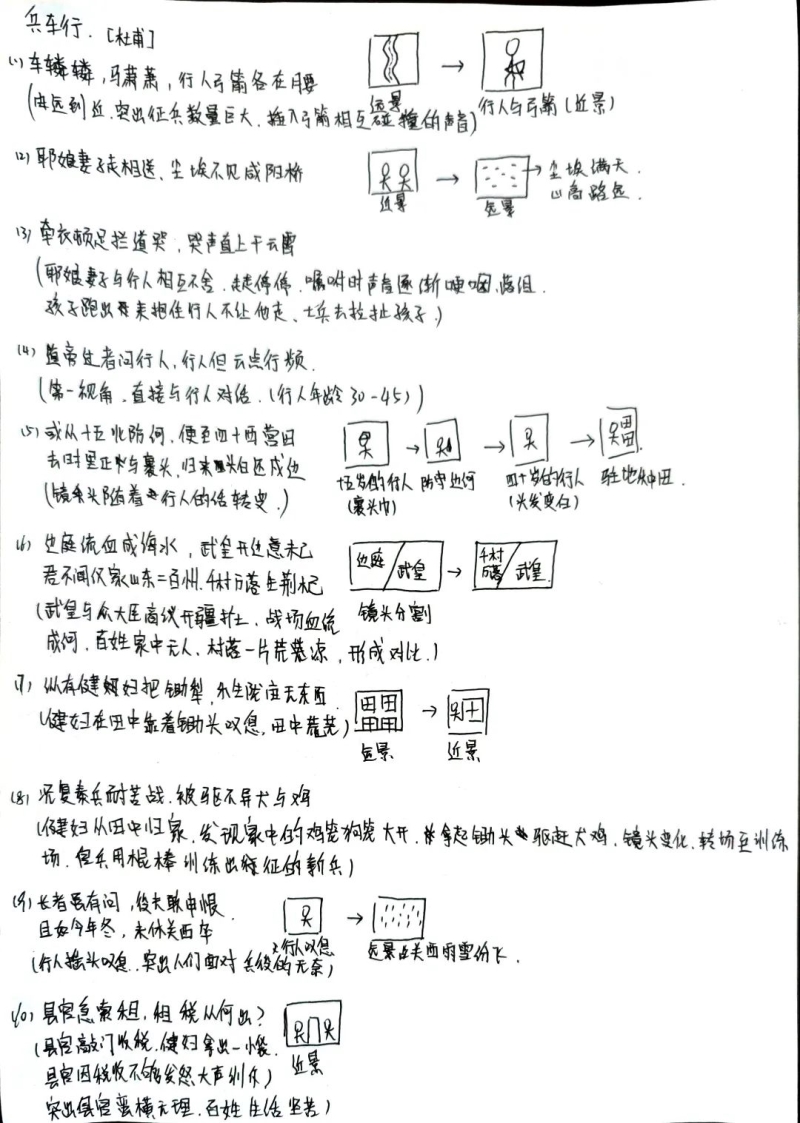 兵车行. [杜甫]
(1) 车辚辚,马萧萧,行人弓箭各在腰
(由远到近.突出征兵数量巨大.插入弓箭相互碰撞的声音)
远景
行人与弓箭(近景)
(2) 耶娘妻子走相送、尘埃不见咸阳桥
近景
远景
尘埃满天.
山高路远.
(3) 牵衣顿足拦道哭,哭声直上干云霄
(耶娘妻子与行人相互不舍.走走停停.嘱咐时声音逐渐哽咽.
孩子跑出来抱住行人不让他走、士兵去拉扯孩子.)
(4) 道旁过者问行人,行人但云点行频.
(第一视角.直接与行人对话.(行人年龄30-45))
(5) 或从十五北防河,便至四十西营田
去时里正与裹头,归来头白还戍边
(镜头随着行人的话转变.)
十五岁的行人
(裹头巾)
防守边河
四十岁的行人
(头发变白)
驻地种田.
(6) 边庭流血成海水,武皇开边意未已
君不闻汉家山东二百州.千村万落生荆杞
(武皇与众大臣商议开疆扩土.战场血流
成河.百姓家中无人.村落一片荒凉,形成对比.)
边庭/武皇
千村万落/武皇
镜头分割
(7) 纵有健妇把锄犁,禾生陇亩无东西.
(健妇在田中靠着锄头叹息,田中荒芜)
远景
近景
(8) 况复秦兵耐苦战.被驱不异犬与鸡
(健妇从田中归家.发现家中的鸡笼狗笼大开.拿起锄头驱赶犬鸡.镜头变化.转场至训练
场.官兵用棍棒训练出征的新兵)
(9) 长者虽有问,役夫敢申恨.
且如今年冬,未休关西卒
(行人摇头叹息.突出人们面对兵役的无奈)
行人叹息
远景 关西雨雪纷飞.
(10) 县官急索租,租税从何出?
(县官敲门收税.健妇拿出一小袋.
县官因税收不够发怒大声训斥)
突出县官蛮横无理.百姓生活坚苦)
近景